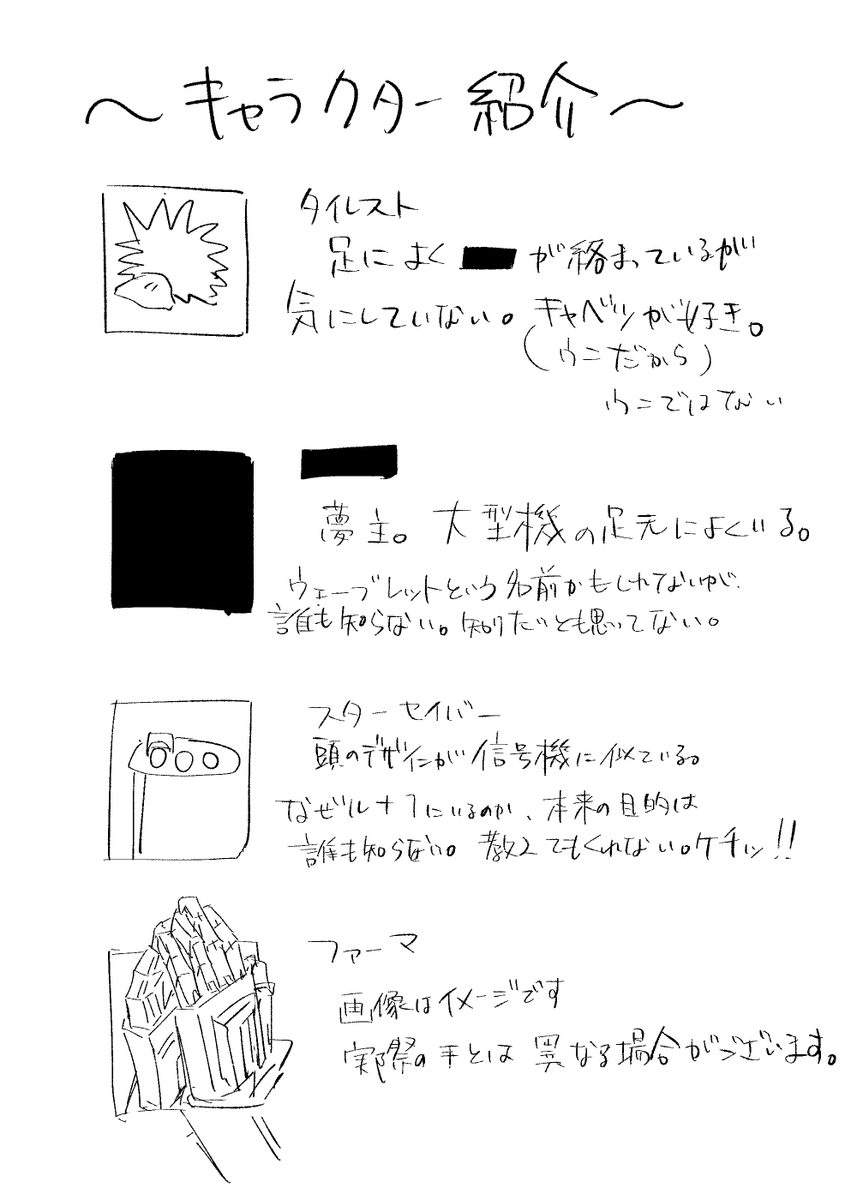 ～キャラクター紹介～
タイルスト
足によく が絡まっているが
気にしていない。キャベツが好き。
(ウニだから)
ウニではない
夢主。大型機の足元によくいる。
ウェーブレットという名前かもしれないが、
誰も知らない。知りたいとも思ってない。
スターセイバー
頭のデザインが信号機に似ている。
なぜルナ1にいるのか、本来の目的は
誰も知らない。教えてもくれない。ケチッ!!
ファーマ
画像はイメージです
実際の手とは異なる場合がございます。